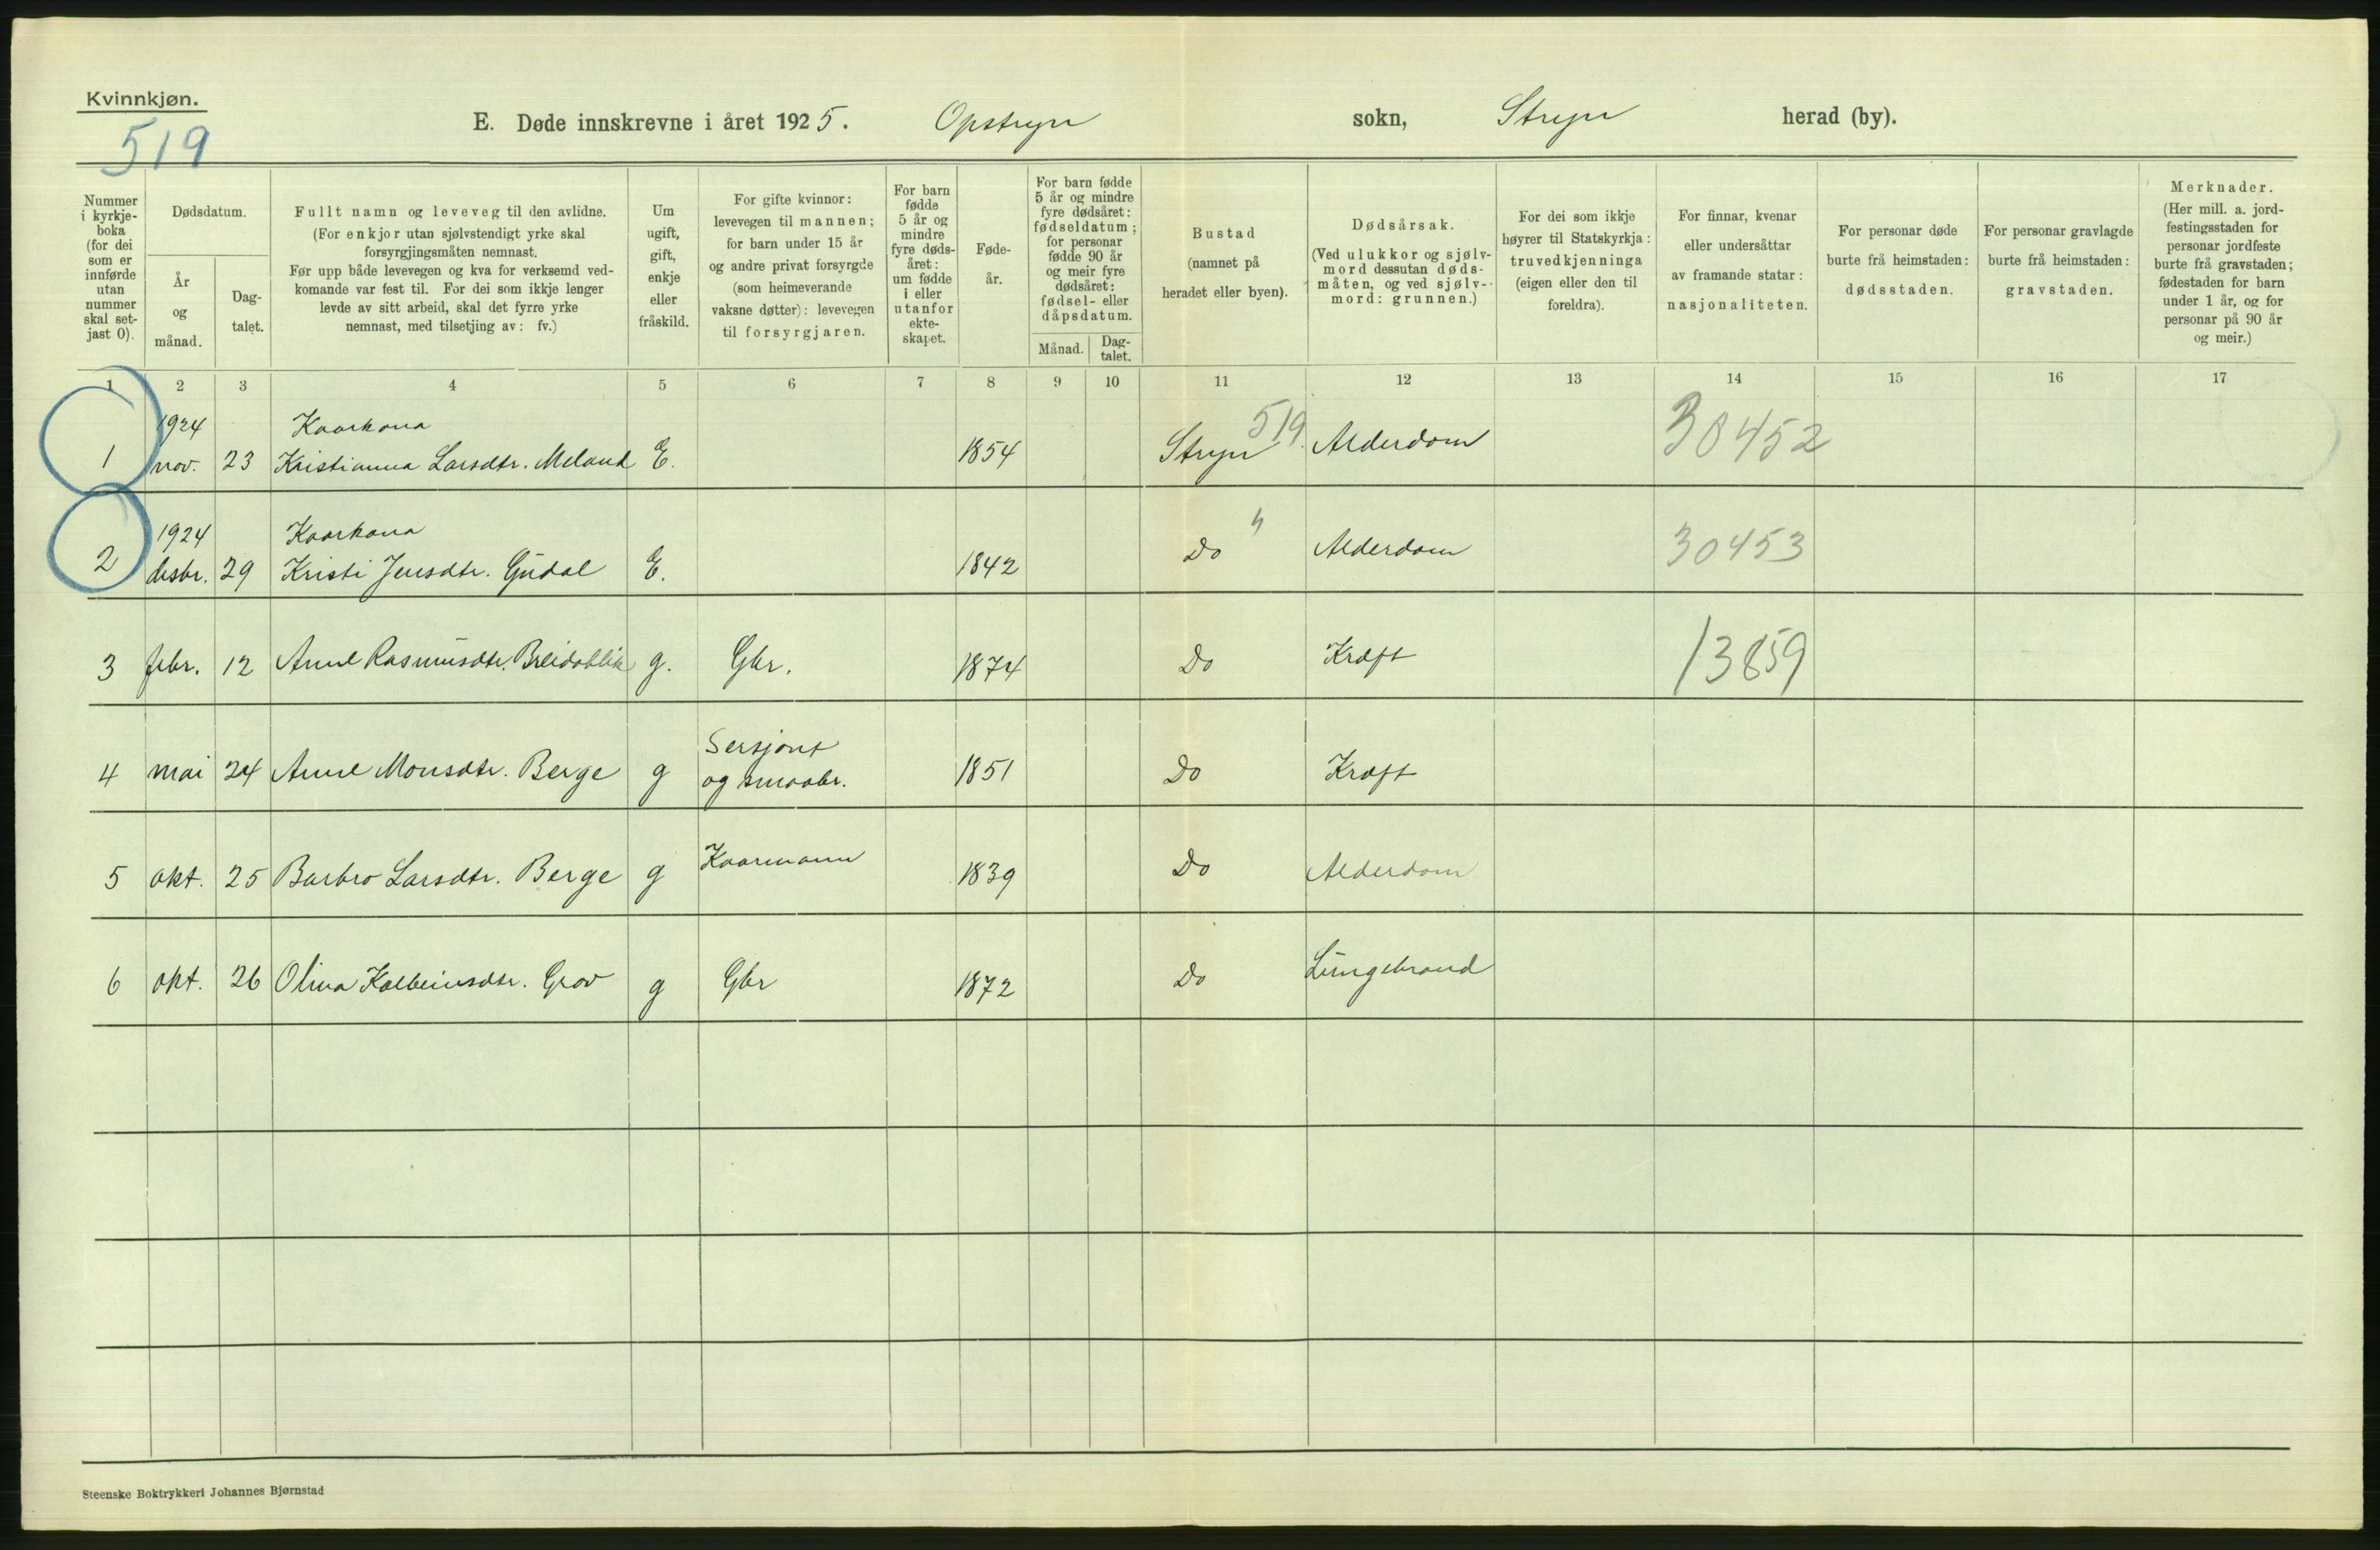 Kvinnkjøn.
519
E. Døde innskrevne i året 1925. Opstryn sokn, Stryn herad (by).
Nummer
i kyrkje-
boka
(for dei
som er
innførde
utan
nummer
skal set-
jast 0).
Dødsdatum.
År
og
månad.
Dag-
talet.
Fullt namn og leveveg til den avlidne.
(For enkjor utan sjølvstendigt yrke skal
forsyrgjingsmåten nemnast.
Før upp både levevegen og kva for verksemd ved-
komande var fest til. For dei som ikkje lenger
levde av sitt arbeid, skal det fyrre yrke
nemnast, med tilsetjing av: fv.)
Um
ugift,
gift,
enkje
eller
fråskild.
For gifte kvinnor:
levevegen til mannen;
for barn under 15 år
og andre privat forsyrgde
(som heimeverande
vaksne døtter): levevegen
til forsyrgjaren.
For barn
fødde
5 år og
mindre
fyre døds-
året:
um fødde
i eller
utanfor
ekte-
skapet.
Føde-
år.
For barn fødde
5 år og mindre
fyre dødsåret:
fødseldatum;
for personar
fødde 90 år
og meir fyre
dødsåret:
fødsel- eller
dåpsdatum.
Månad.
Dag-
talet.
Bustad
(namnet på
heradet eller byen).
Dødsårsak.
(Ved ulukkor og sjølv-
mord dessutan døds-
måten, og ved sjølv-
mord: grunnen.)
For dei som ikkje
høyrer til Statskyrkja:
truvedkjenninga
(eigen eller den til
foreldra).
For finnar, kvenar
eller undersåttar
av framande statar:
nasjonaliteten.
For personar døde
burte frå heimstaden:
dødsstaden.
For personar gravlagde
burte frå heimstaden:
gravstaden.
Merknader.
(Her mill. a. jord-
festingsstaden for
personar jordfeste
burte frå gravstaden;
fødestaden for barn
under 1 år, og for
personar på 90 år
og meir.)
1 2 3 4 5 6 7 8 9 10 11 12 13 14 15 16 17
1924 Kaarkona 519
1 nov. 23 Kristianna Larsdtr. Meland E. 1854 Stryn Alderdom 30452
1924 Kaarkona "
2 desbr. 29 Kristi Jensdtr. Gudal E. 1842 Do Alderdom 30453
3 febr. 12 Anne Rasmusdtr. Breidablik g. Gbr. 1874 Do Kræft 13859
Sersjant
4 mai 24 Anne Monsdtr. Berge g og smaabr. 1851 Do Kræft
5 okt. 25 Barbro Larsdtr. Berge g Kaarmann 1839 Do Alderdom
6 okt. 26 Olina Kolbeinsdtr. Grov g Gbr 1872 Do Lungebrand
Steenske Boktrykkeri Johannes Bjørnstad